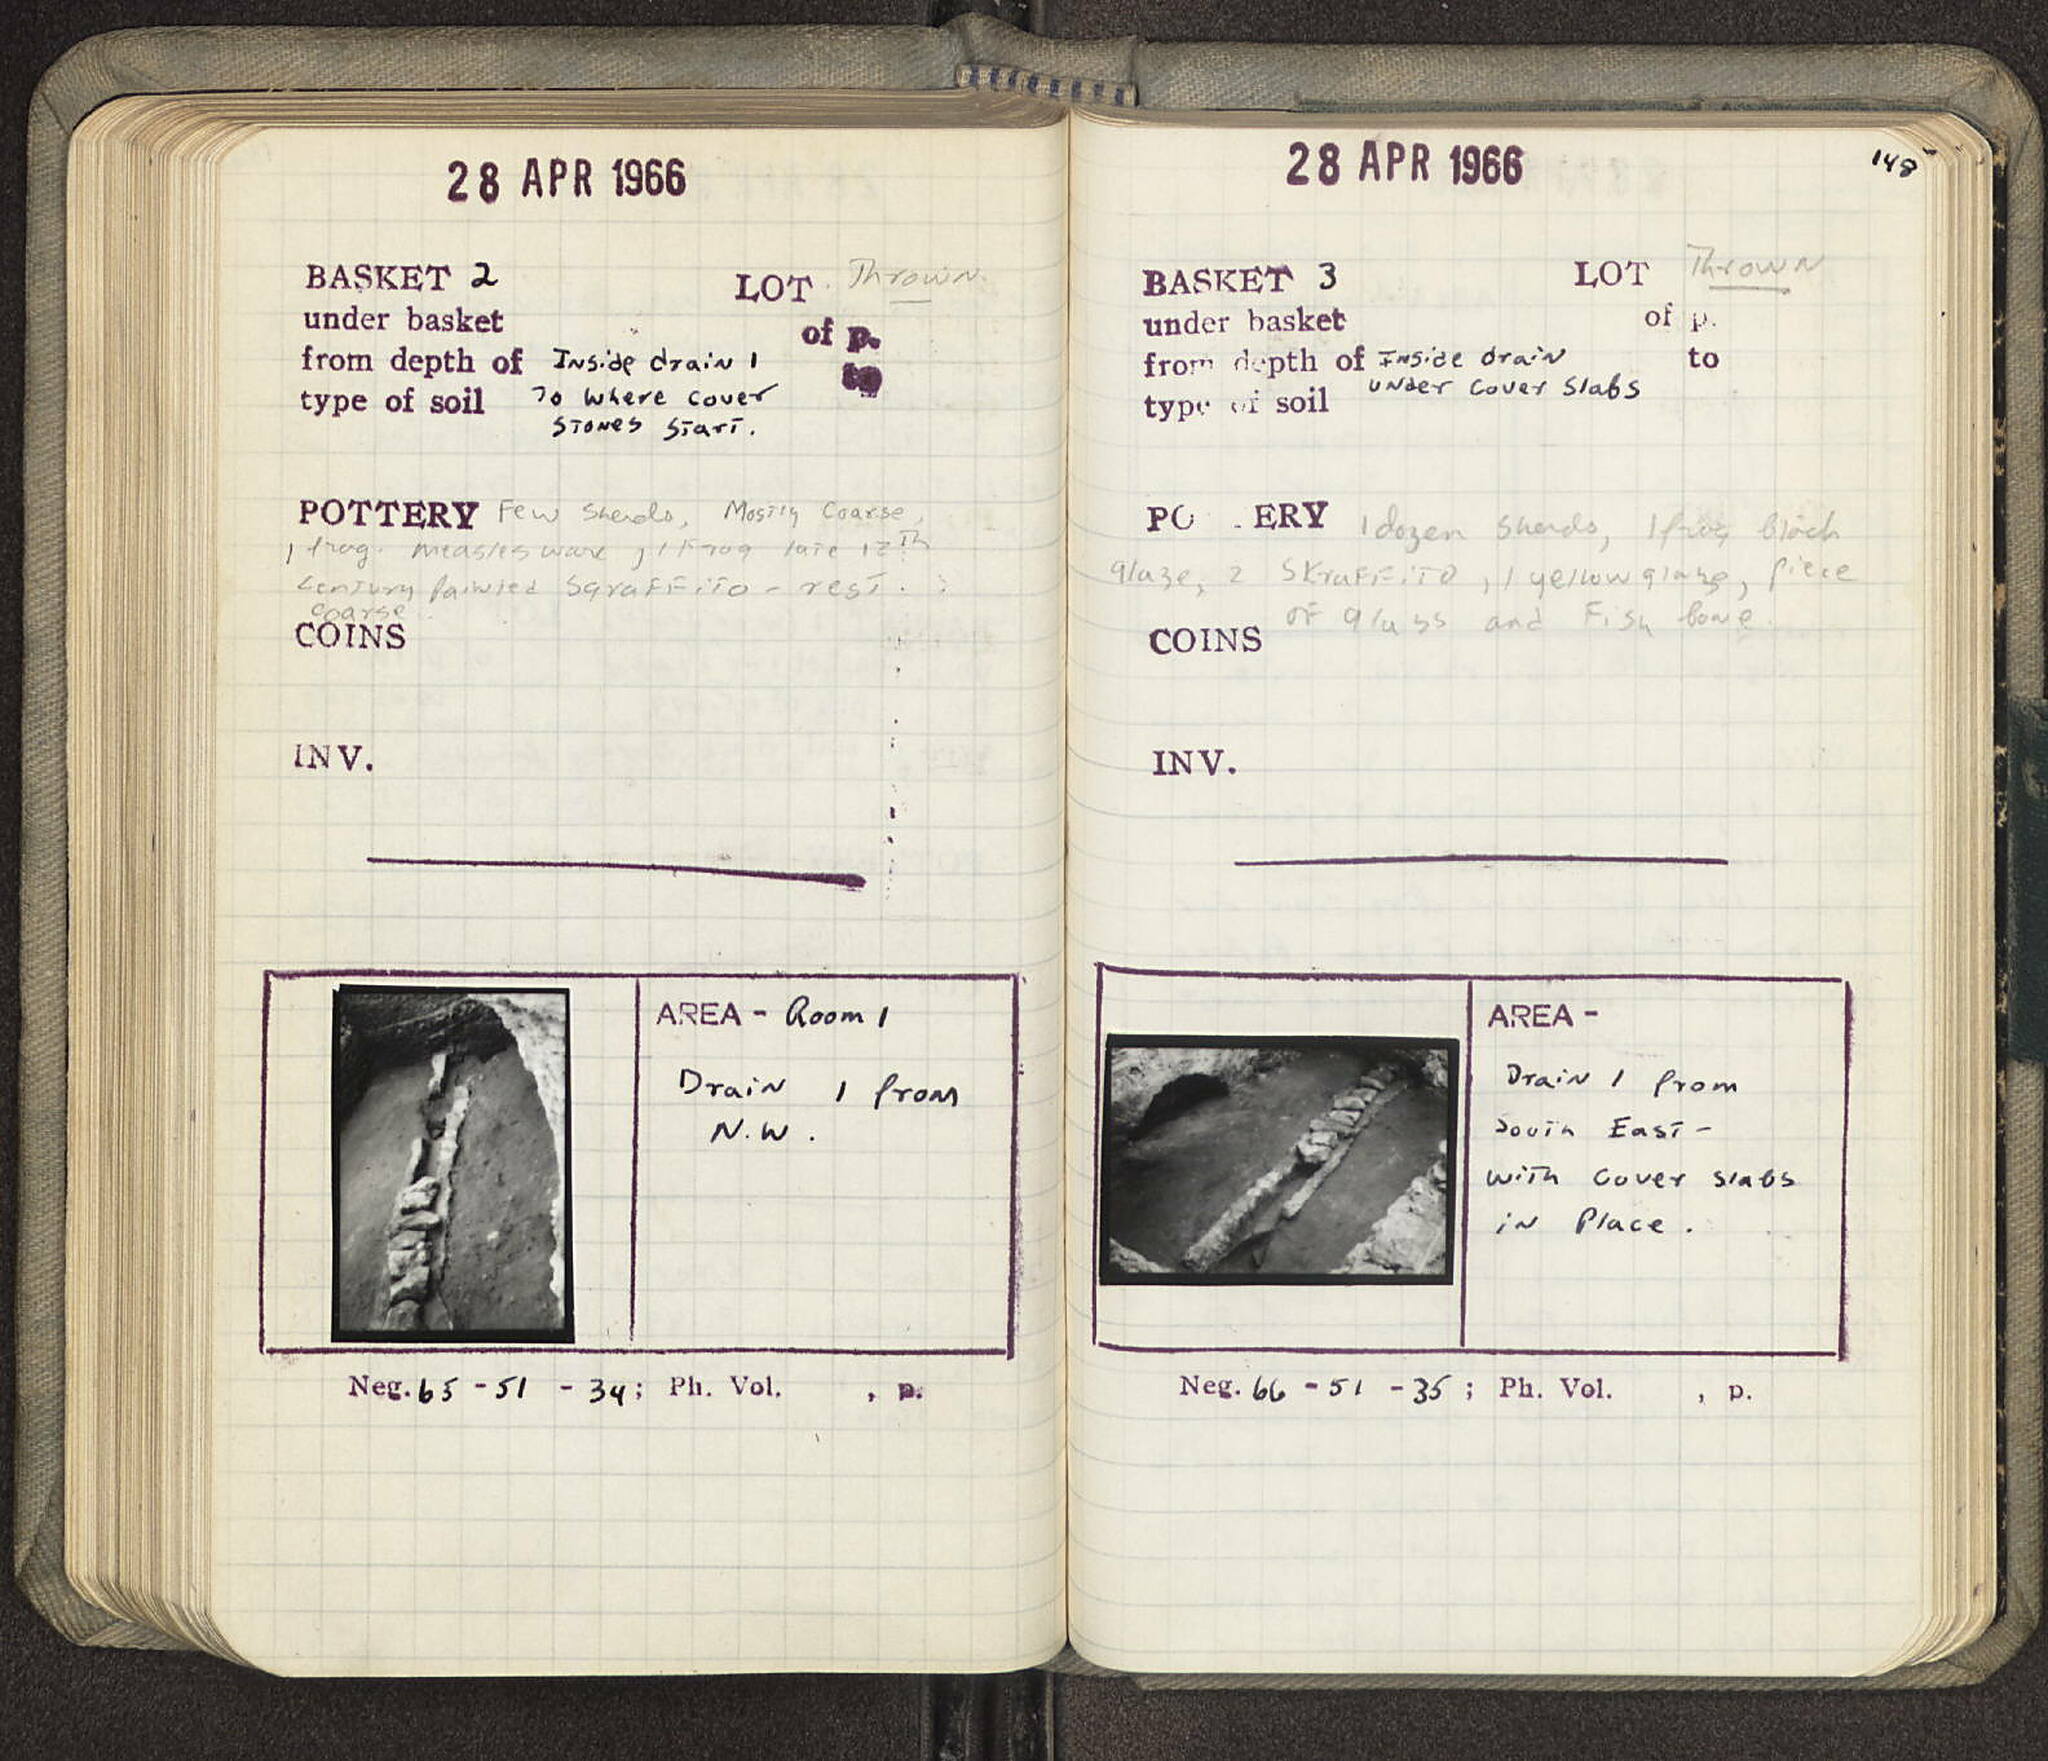 28 APR 1966
BASKET 2 LOT Thrown
under basket of p.
from depth of Inside drain 1 to
type of soil To where cover
stones start.
POTTERY Few sherds, Mostly coarse,
1 frag. measles ware, 1 frag late 12th
century painted sgraffito - rest
coarse
COINS
INV.
AREA - Room 1
Drain 1 from
N.W.
Neg. 65 - 51 - 34; Ph. Vol. , p.
28 APR 1966
148
BASKET 3 LOT Thrown
under basket of p.
from depth of Inside drain to
under cover slabs
type of soil
PO ERY 1 dozen sherds, 1 frag black
glaze, 2 skraffito, 1 yellow glaze, piece
of glass and Fish bone.
COINS
INV.
AREA -
Drain 1 from
South East -
with cover slabs
in Place.
Neg. 66 - 51 - 35; Ph. Vol. , p.